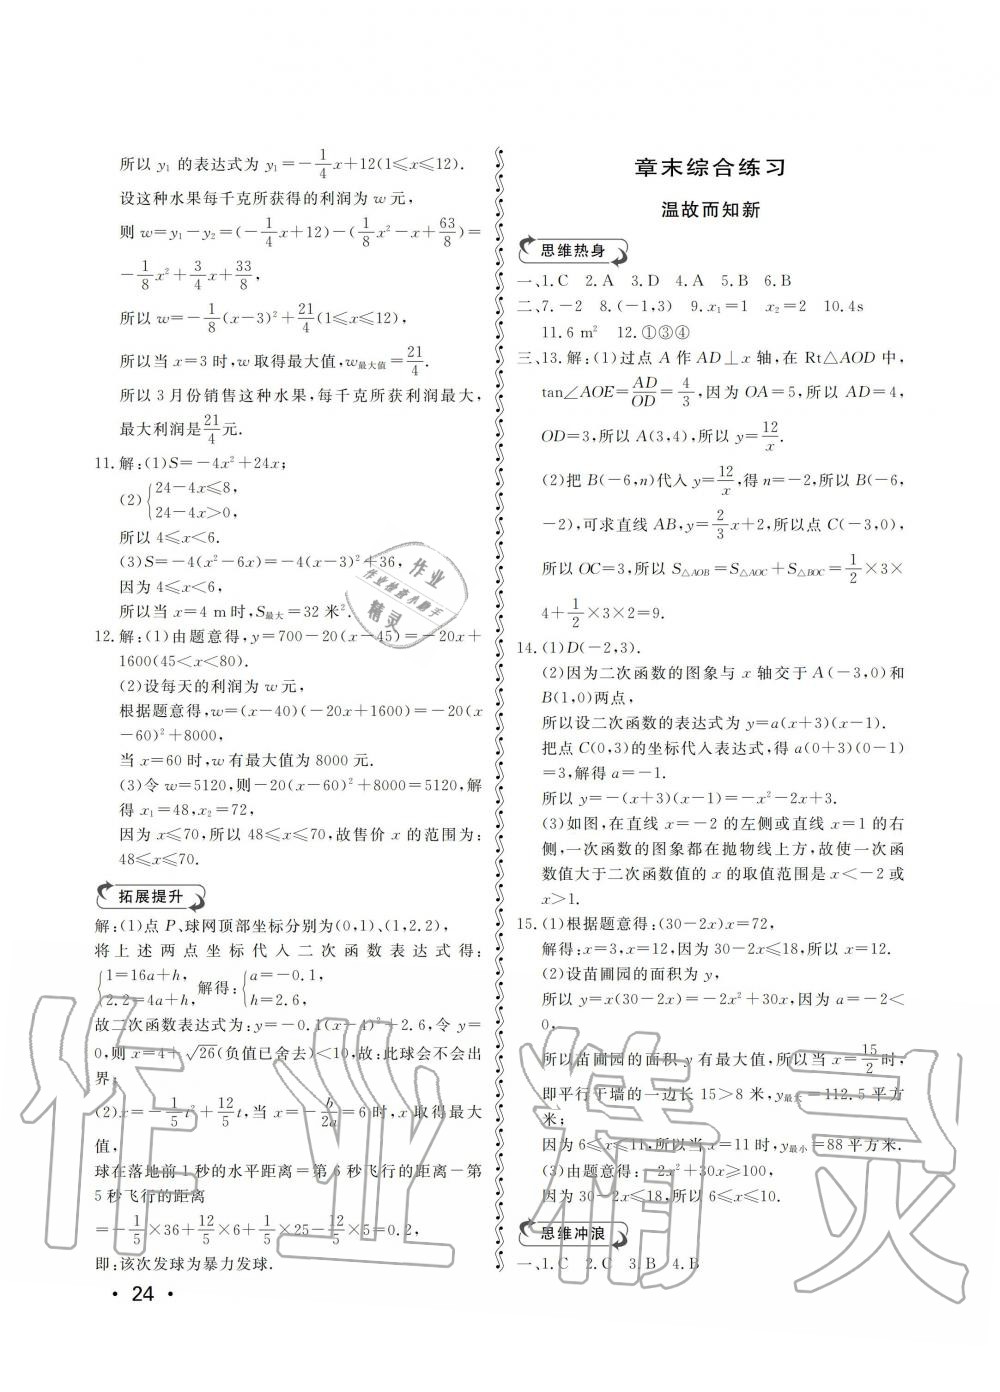 所以 y₁ 的表达式为 y₁=-1/4x+12(1≤x≤12).
设这种水果每千克所获得的利润为 w 元,
则 w=y₁-y₂=(-1/4x+12)-(1/8x²-x+63/8)=
-1/8x²+3/4x+33/8,
所以 w=-1/8(x-3)²+21/4(1≤x≤12),
所以当 x=3 时,w 取得最大值,w最大值=21/4.
所以 3 月份销售这种水果,每千克所获利润最大,
最大利润是21/4元.
11.解:(1)S=-4x²+24x;
(2){24-4x≤8,
24-4x>0,
所以 4≤x<6.
(3)S=-4(x²-6x)=-4(x-3)²+36,
因为 4≤x<6,
所以当 x=4 m 时,S最大=32 米².
12.解:(1)由题意得,y=700-20(x-45)=-20x+
1600(45<x<80).
(2)设每天的利润为 w 元,
根据题意得,w=(x-40)(-20x+1600)=-20(x
-60)²+8000,
当 x=60 时,w 有最大值为 8000 元.
(3)令 w=5120,则-20(x-60)²+8000=5120,解
得 x₁=48,x₂=72,
因为 x≤70,所以 48≤x≤70,故售价 x 的范围为:
48≤x≤70.
拓展提升
解:(1)点 P、球网顶部坐标分别为(0,1)、(1,2.2),
将上述两点坐标代入二次函数表达式得:
{1=16a+h,
2.2=4a+h,
解得:{a=-0.1,
h=2.6,
故二次函数表达式为:y=-0.1(x-4)²+2.6,令 y=
0,则 x=4+√26(负值已舍去)<10,故:此球会不会出
界;
(2)x=-1/5t²+12/5t,当 x=-b/2a=6 时,x 取得最大
值,
球在落地前 1 秒的水平距离=第 6 秒飞行的距离-第
5 秒飞行的距离
=-1/5×36+12/5×6+1/5×25-12/5×5=0.2,
即:该次发球为暴力发球.
· 24 ·
章末综合练习
温故而知新
思维热身
一、1.C 2.A 3.D 4.A 5.B 6.B
二、7.-2 8.(-1,3) 9.x₁=1 x₂=2 10.4s
11.6 m² 12.①③④
三、13.解:(1)过点 A 作 AD⊥x 轴,在 Rt△AOD 中,
tan∠AOE=AD/OD=4/3,因为 OA=5,所以 AD=4,
OD=3,所以 A(3,4),所以 y=12/x.
(2)把 B(-6,n)代入 y=12/x,得 n=-2,所以 B(-6,
-2),可求直线 AB,y=2/3x+2,所以点 C(-3,0),
所以 OC=3,所以 S△AOB=S△AOC+S△BOC=1/2×3×
4+1/2×3×2=9.
14.(1)D(-2,3).
(2)因为二次函数的图象与 x 轴交于 A(-3,0)和
B(1,0)两点,
所以设二次函数的表达式为 y=a(x+3)(x-1).
把点 C(0,3)的坐标代入表达式,得 a(0+3)(0-1)
=3,解得 a=-1.
所以 y=-(x+3)(x-1)=-x²-2x+3.
(3)如图,在直线 x=-2 的左侧或直线 x=1 的右
侧,一次函数的图象都在抛物线上方,故使一次函
数值大于二次函数值的 x 的取值范围是 x<-2 或
x>1.
15.(1)根据题意得:(30-2x)x=72,
解得:x=3,x=12,因为 30-2x≤18,所以 x=12.
(2)设苗圃园的面积为 y,
所以 y=x(30-2x)=-2x²+30x,因为 a=-2<
0,
所以苗圃园的面积 y 有最大值,所以当 x=15/2时,
即平行于墙的一边长 15>8 米,y最大=112.5 平方
米;
因为 6≤x≤11,所以当 x=11 时,y最小=88 平方米.
(3)由题意得:-2x²+30x≥100,
因为 30-2x≤18,所以 6≤x≤10.
思维冲浪
一、1.C 2.C 3.B 4.B
作业
作业快速小助手
精灵
作业精灵